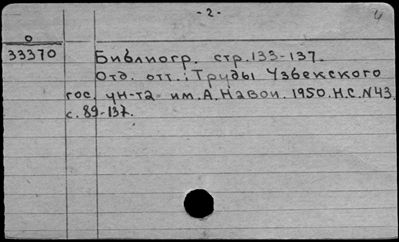 -2-
4
0
33370
Библиогр. стр.133-137.
Отд. отт.: Труды Узбекского
гос. ун-та им. А. Навои. 1950. Н.С. N43.
с. 89-137.